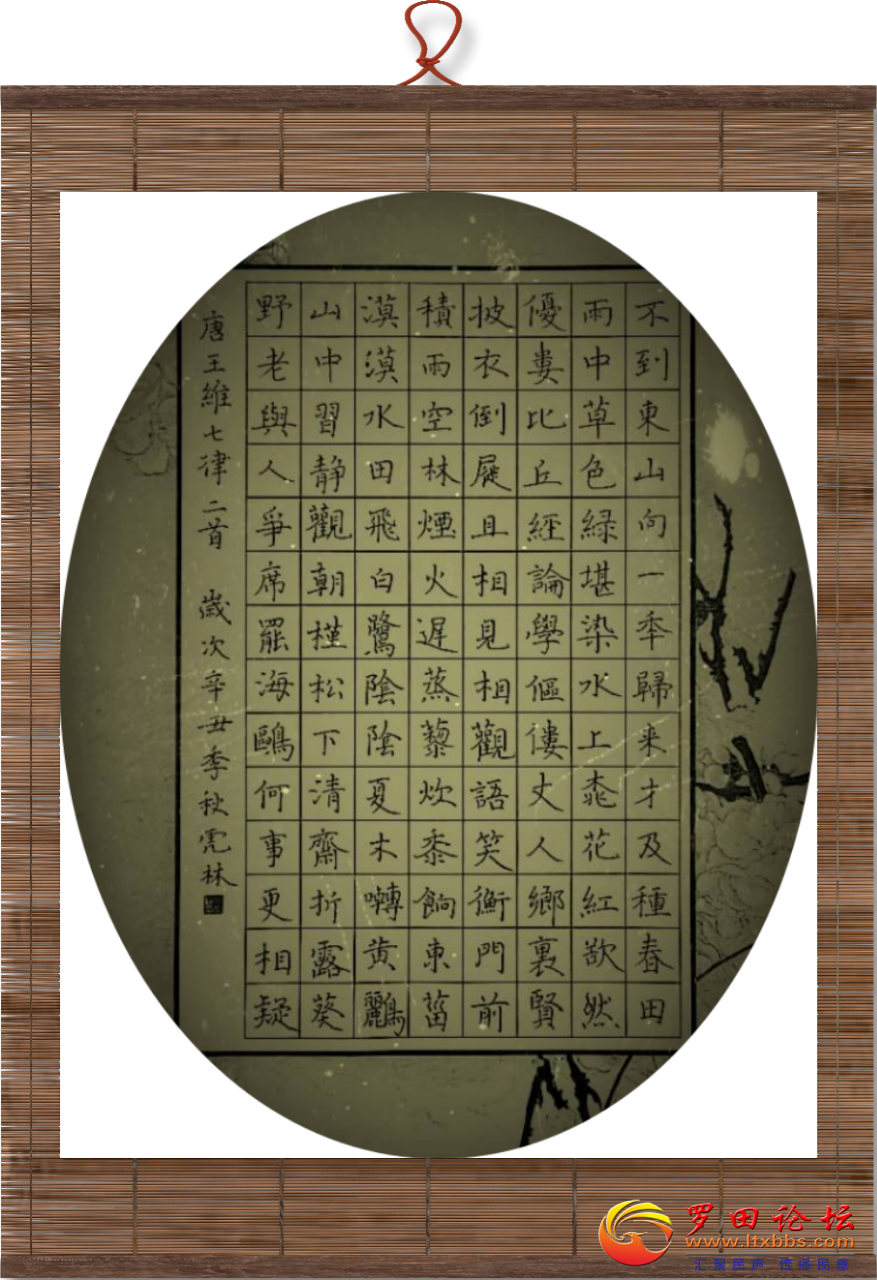 不到東山向一秊歸来才及種春田
雨中草色緑堪染水上桃花紅欲然
優婁比丘經論學傴僂丈人鄉裏賢
披衣倒屣且相見相觀語笑衡門前
積雨空林煙火遲蒸藜炊黍餉東菑
漠漠水田飛白鷺陰陰夏木囀黄鸝
山中習静觀朝槿松下清齋折露葵
野老與人爭席罷海鷗何事更相疑
唐王維七律二首 歲次辛丑季秋亮林
罗田论坛
www.ltxbbs.com
汇聚民声 传播民意